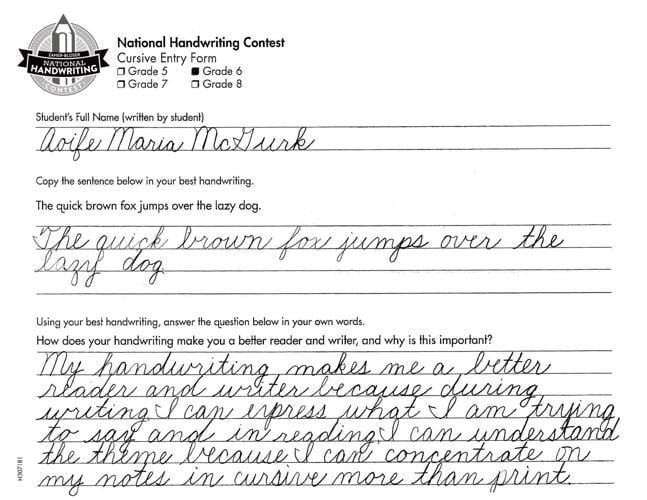 ZANER-BLOSER
NATIONAL
HANDWRITING
CONTEST
National Handwriting Contest
Cursive Entry Form
☐ Grade 5 ■ Grade 6
☐ Grade 7 ☐ Grade 8
Student's Full Name (written by student)
Aoife Maria McGurk
Copy the sentence below in your best handwriting.
The quick brown fox jumps over the lazy dog.
The quick brown fox jumps over the
lazy dog.
Using your best handwriting, answer the question below in your own words.
How does your handwriting make you a better reader and writer, and why is this important?
My handwriting makes me a better
reader and writer because during
writing I can express what I am trying
to say and in reading I can understand
the theme because I can concentrate on
my notes in cursive more than print.